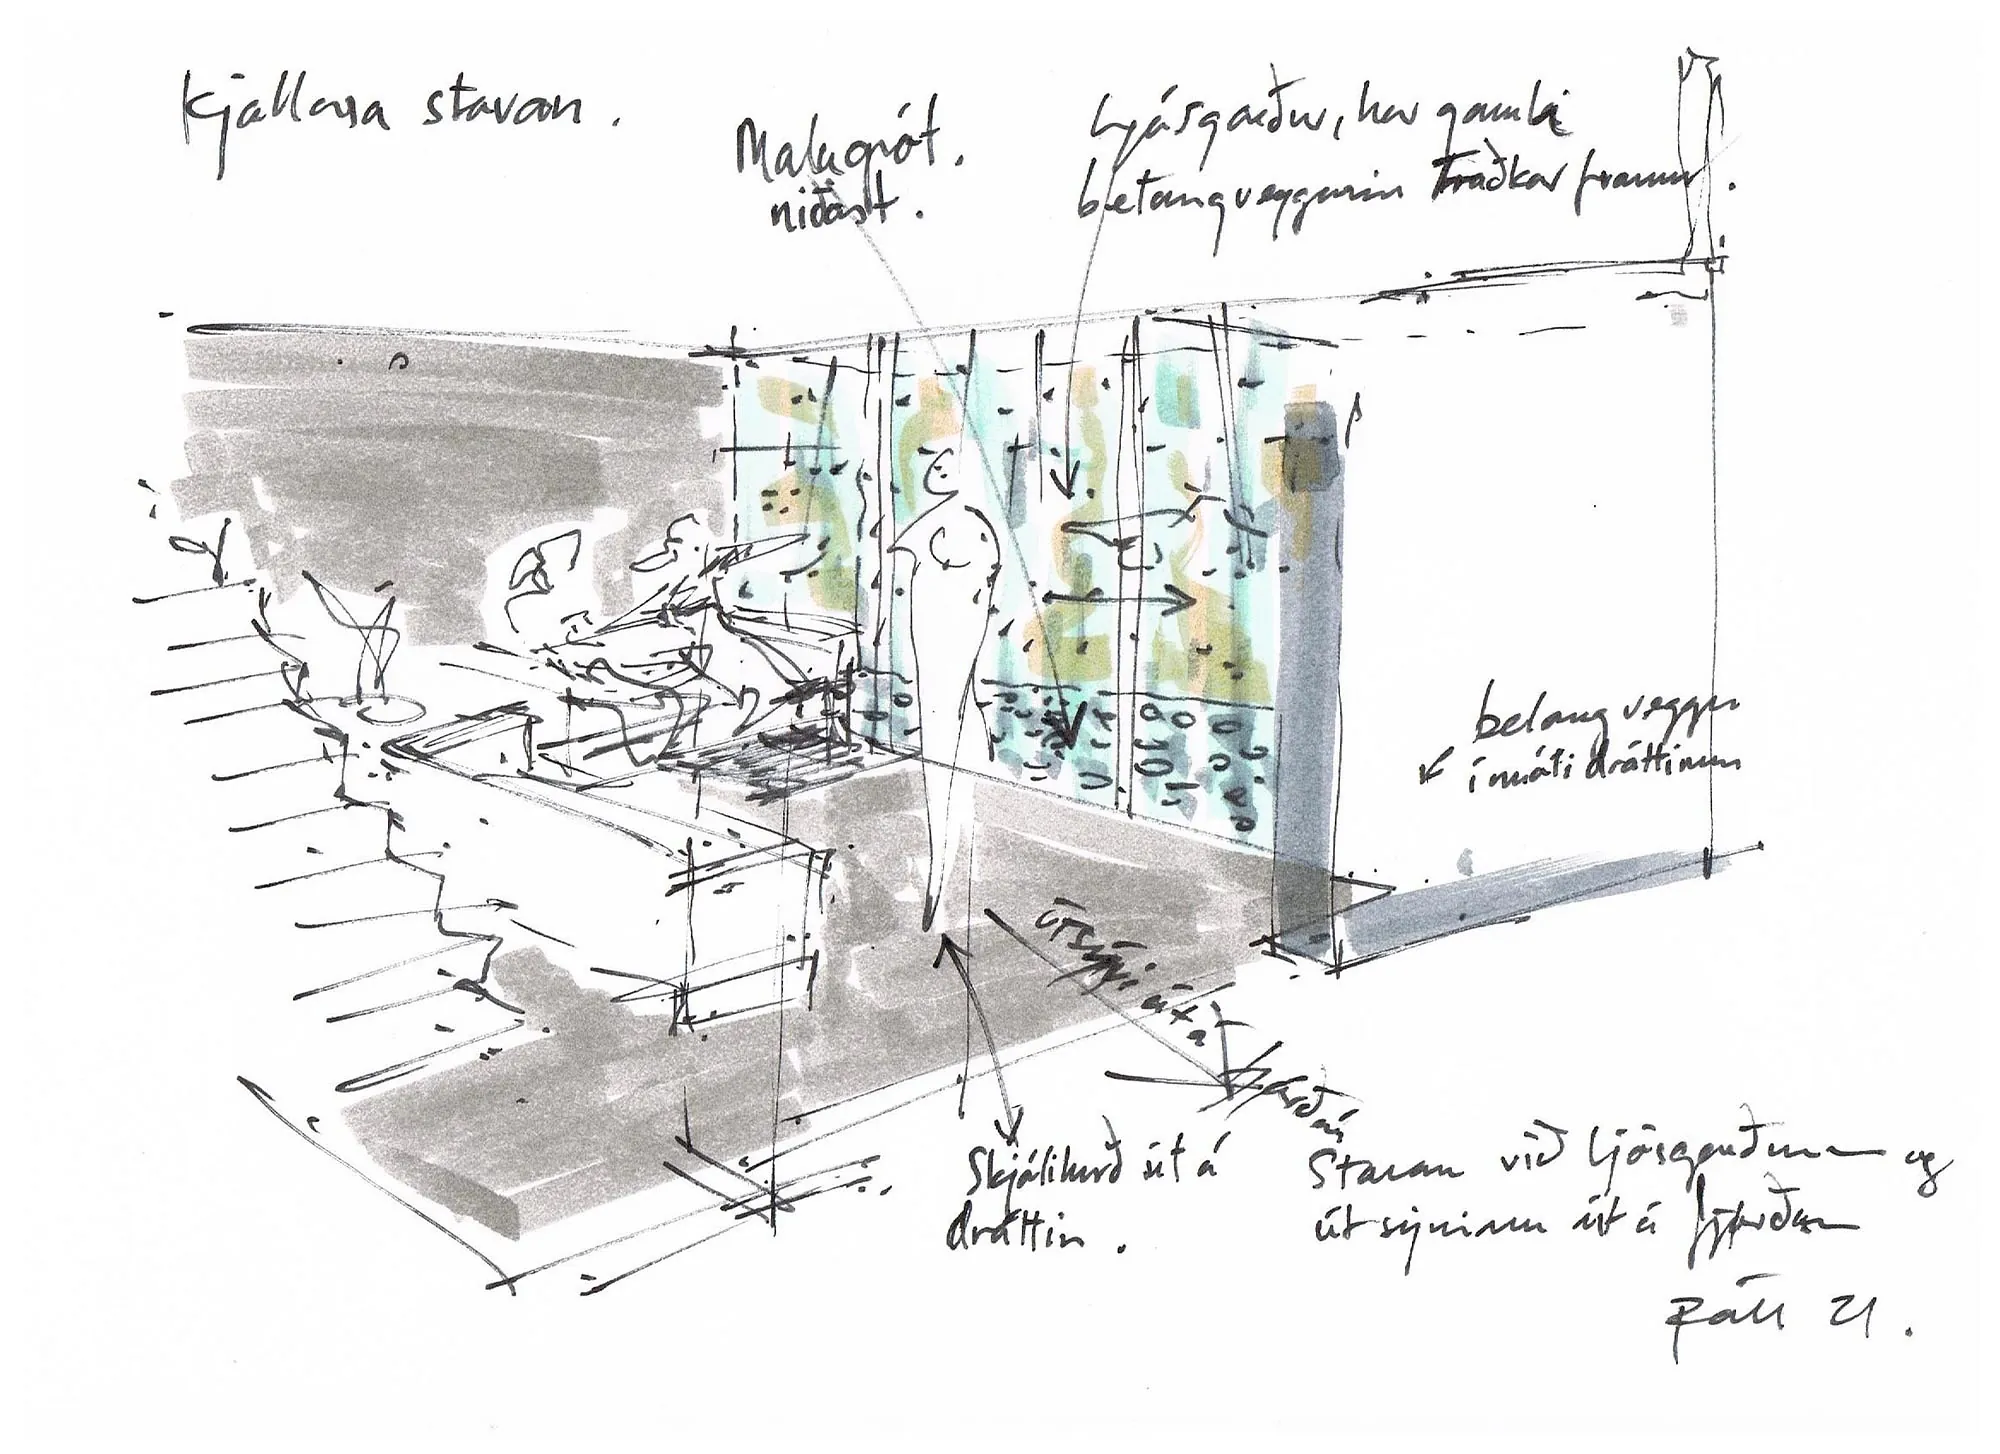 Kjallara stavan.
Malugrót.
niðast.
Ljósgarður, har gamla
betongveggurin Traðkar framur.
betong veggur
ímóti dráttinum
útsýni út á
Skjálihurð út á
dráttin.
Stavan við ljósgarðum og
útsýninum út á fjørðan
Páll 21.